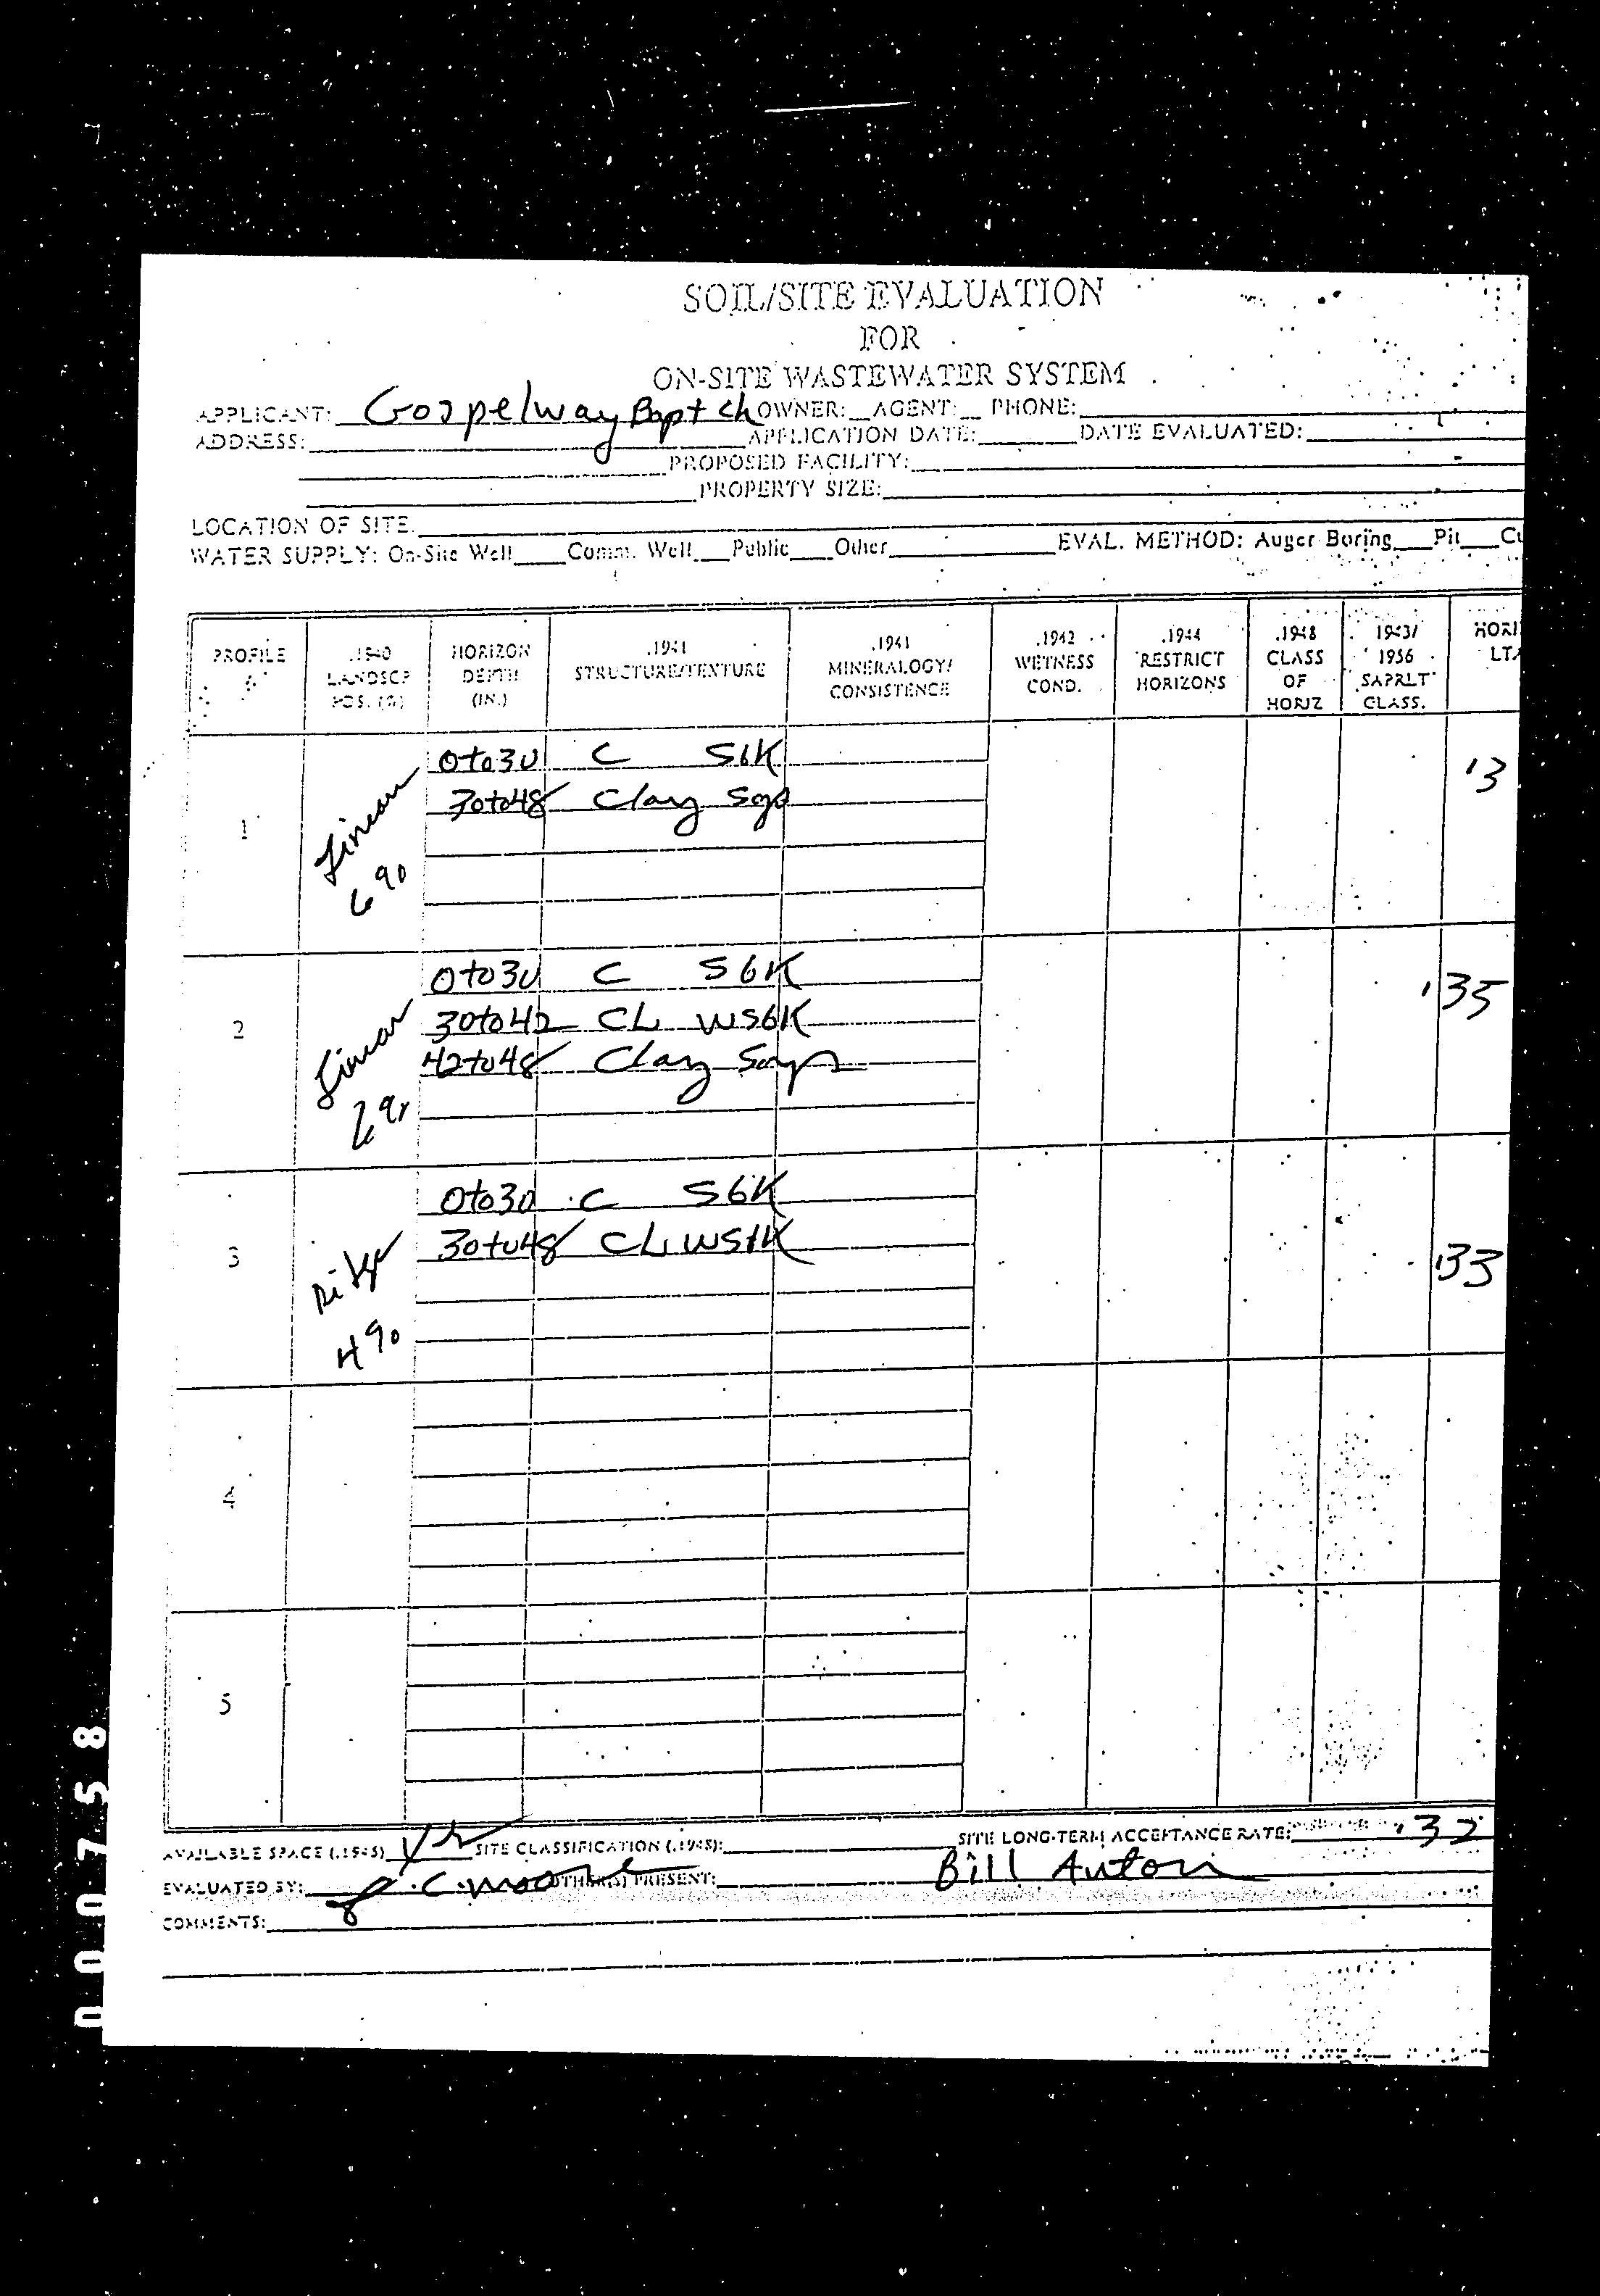 SOIL/SITE EVALUATION
FOR
ON-SITE WASTEWATER SYSTEM
APPLICANT: Gospelway Bapt ch OWNER:__ AGENT:__ PHONE:
ADDRESS: APPLICATION DATE: DATE EVALUATED:
PROPOSED FACILITY:
PROPERTY SIZE:
LOCATION OF SITE.
WATER SUPPLY: On-Site Well____Comm. Well___Public___Other EVAL. METHOD: Auger Boring___Pit___Cu
PROFILE
.1940
LANDSCP
POS. (%)
HORIZON
DEPTH
(IN.)
.1941
STRUCTURE/TEXTURE
.1941
MINERALOGY/
CONSISTENCE
.1942
WETNESS
COND.
.1944
RESTRICT
HORIZONS
.1948
CLASS
OF
HORIZ
1943/
1956
SAPRLT
CLASS.
HORI
LTA
1
Linear
6%
0to30 C S6K
30to48 Clay Sap
.3
2
Linear
6%
0to30 C S6K
30to42 CL WS6K
42to48 Clay Sap
.35
3
Ridge
4%
0to30 C S6K
30to48 CL WS6K
.33
4
5
AVAILABLE SPACE (.1945) SITE CLASSIFICATION (.1948): SITE LONG-TERM ACCEPTANCE RATE: .32
EVALUATED BY: J.C. Moore OTHER(S) PRESENT: Bill Auton
COMMENTS:
000758